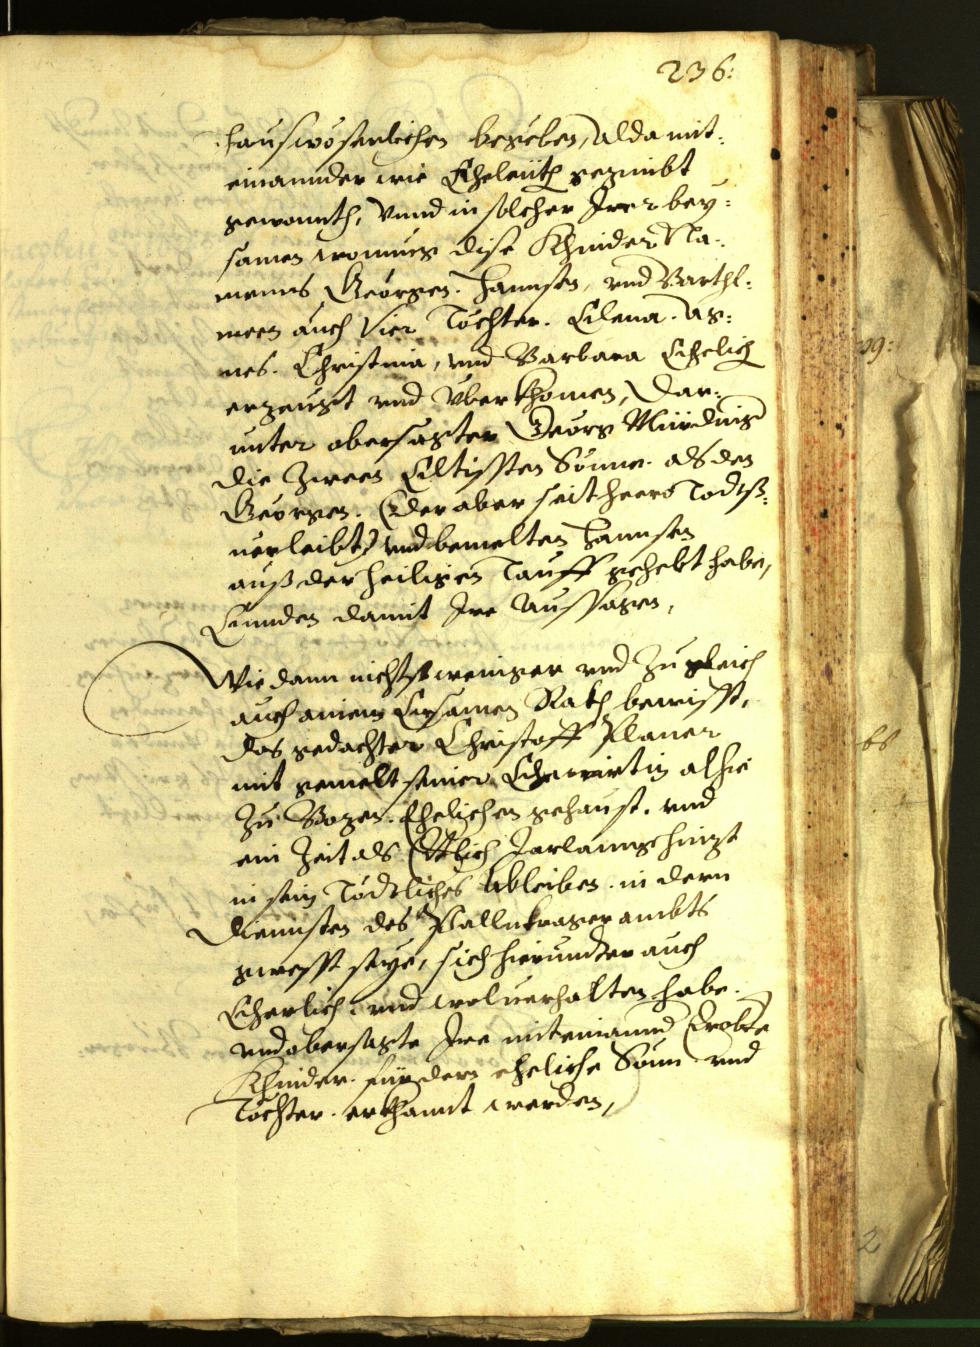 236:
hauswösenlichen begeben, Alda mit:
einannder wie Eheleüth gezimbt
gewonnth, Vnnd in solcher Irer bey:
samen wonung dise Khinder Na:
mens Georgen. Hannsen, vnd Barthl:
meen auch Vier Töchter. Elena. Ag:
nes. Christina, vnd Barbara Ehelich
erzeugt vnd Vberkhomen, Dar:
unter obersagter Georg
die Zween Eltissten Sönne. als den
Georgen. (der aber seithero Todtß:
verleibt) vnd bemelten Hannsen
auß der heiligen Tauff gehebt habe,
Ennden damit Ire Aussagen,
Wie dann nichtßweniger vnd Zugleich
auch ainem Ersamen Rath bewisst,
das gedachter Christoff Planer
mit gemelt seiner Ehewirtin alhie
Zu Bozen. Ehelichen gehaust. vnd
ein Zeit als Etlich Jarlanng hinzt
in sein Tödtliches Ableiben. in dern
Diennsten des ambts
gewesst seye, sich hierundter auch
Eherlich. vnd wol verhalten habe.
vnd obersagte Ire miteinannd Erobte
Khinder. für dern eheliche Sönn vnd
Töchter. erkhannt werden,
99:
66
2